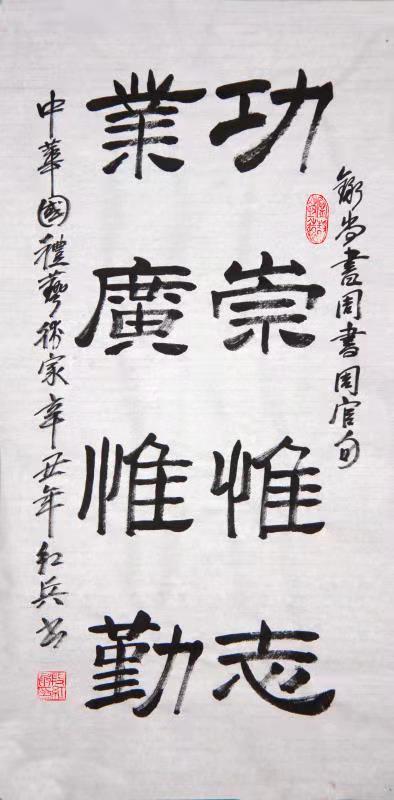 錄尚書周書周官句
功崇惟志
業廣惟勤
中華國禮藝術家辛丑年紅兵書